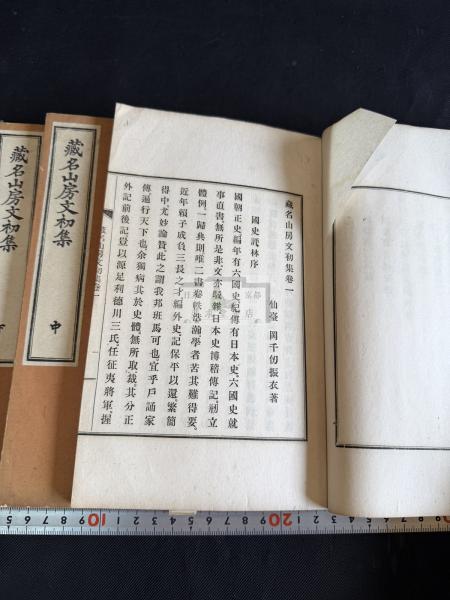 藏名山房文初集卷一
仙臺 岡千仞振衣著
國史䟽林序
國朝正史編年有六國史紀傳有日本史六國史就
事直書無所是非文亦駁雜日本史博稽傳記剏立
體例一歸典則唯二書卷帙浩瀚學者苦其難得要
近年賴子成負三長之才編外史記保平以還繁簡
得中尤妙論贊此之謂我邦班馬可也宜乎戶誦家
傳遍行天下也余獨病其於史體無所取裁其分正
外記前後記豈以源足利德川三氏任征夷將軍握
藏名山房文初集卷一
藏名山房文初集
中
藏名山房文初集
5 6 7 8 9 10 1 2 3 4 5 6 7 8 9 20 1 2 3 4 5 6 7 8 9